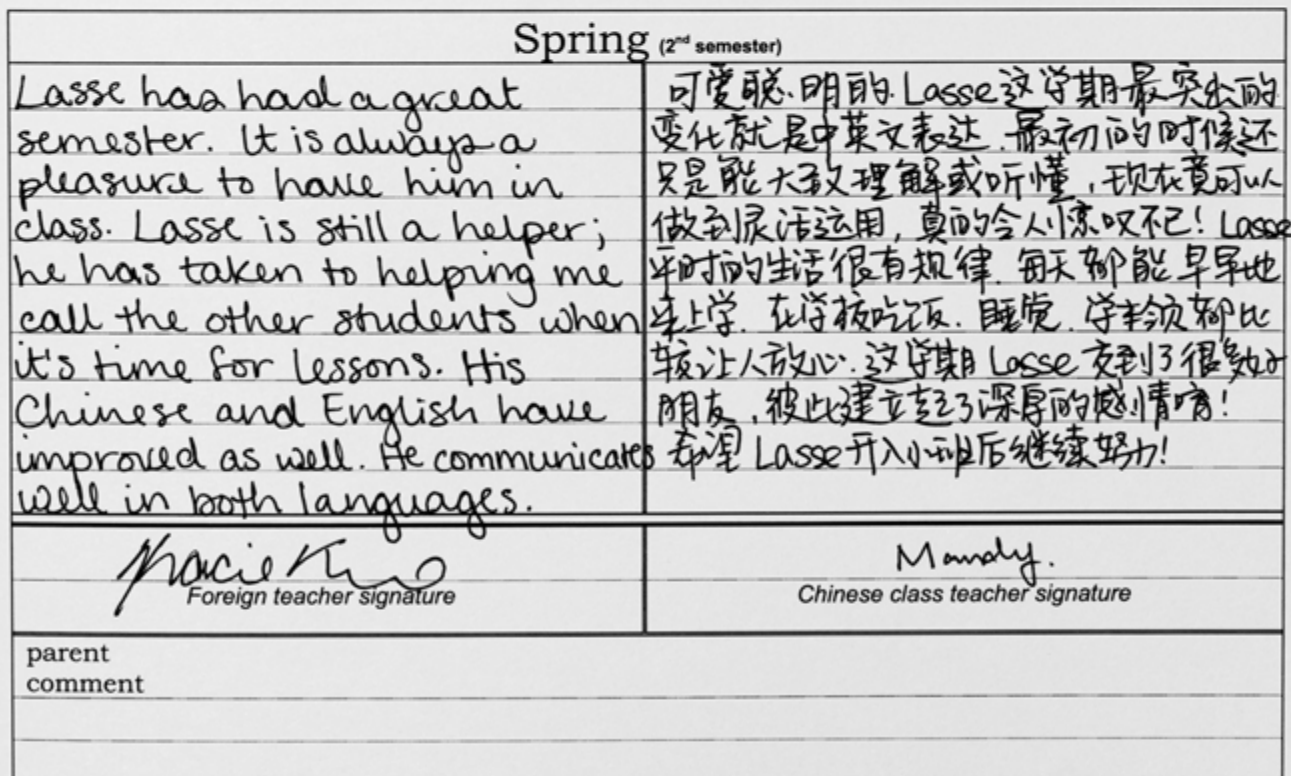 Spring (2nd semester)
Lasse has had a great
semester. It is always a
pleasure to have him in
class. Lasse is still a helper;
he has taken to helping me
call the other students when
it's time for lessons. His
Chinese and English have
improved as well. He communicates
well in both languages.
可爱聪明的Lasse这学期最突出的
变化就是中英文表达.最初的时候还
只是能大致理解或听懂,现在竟可以
做到灵活运用,真的令人惊叹不已!Lasse
平时的生活很有规律.每天都能早早地
来上学.在学校吃饭.睡觉.学本领都比
较让人放心.这学期Lasse交到了很多好
朋友,彼此建立起了深厚的感情唷!
希望Lasse升入小班后继续努力!
Foreign teacher signature
Mandy.
Chinese class teacher signature
parent
comment